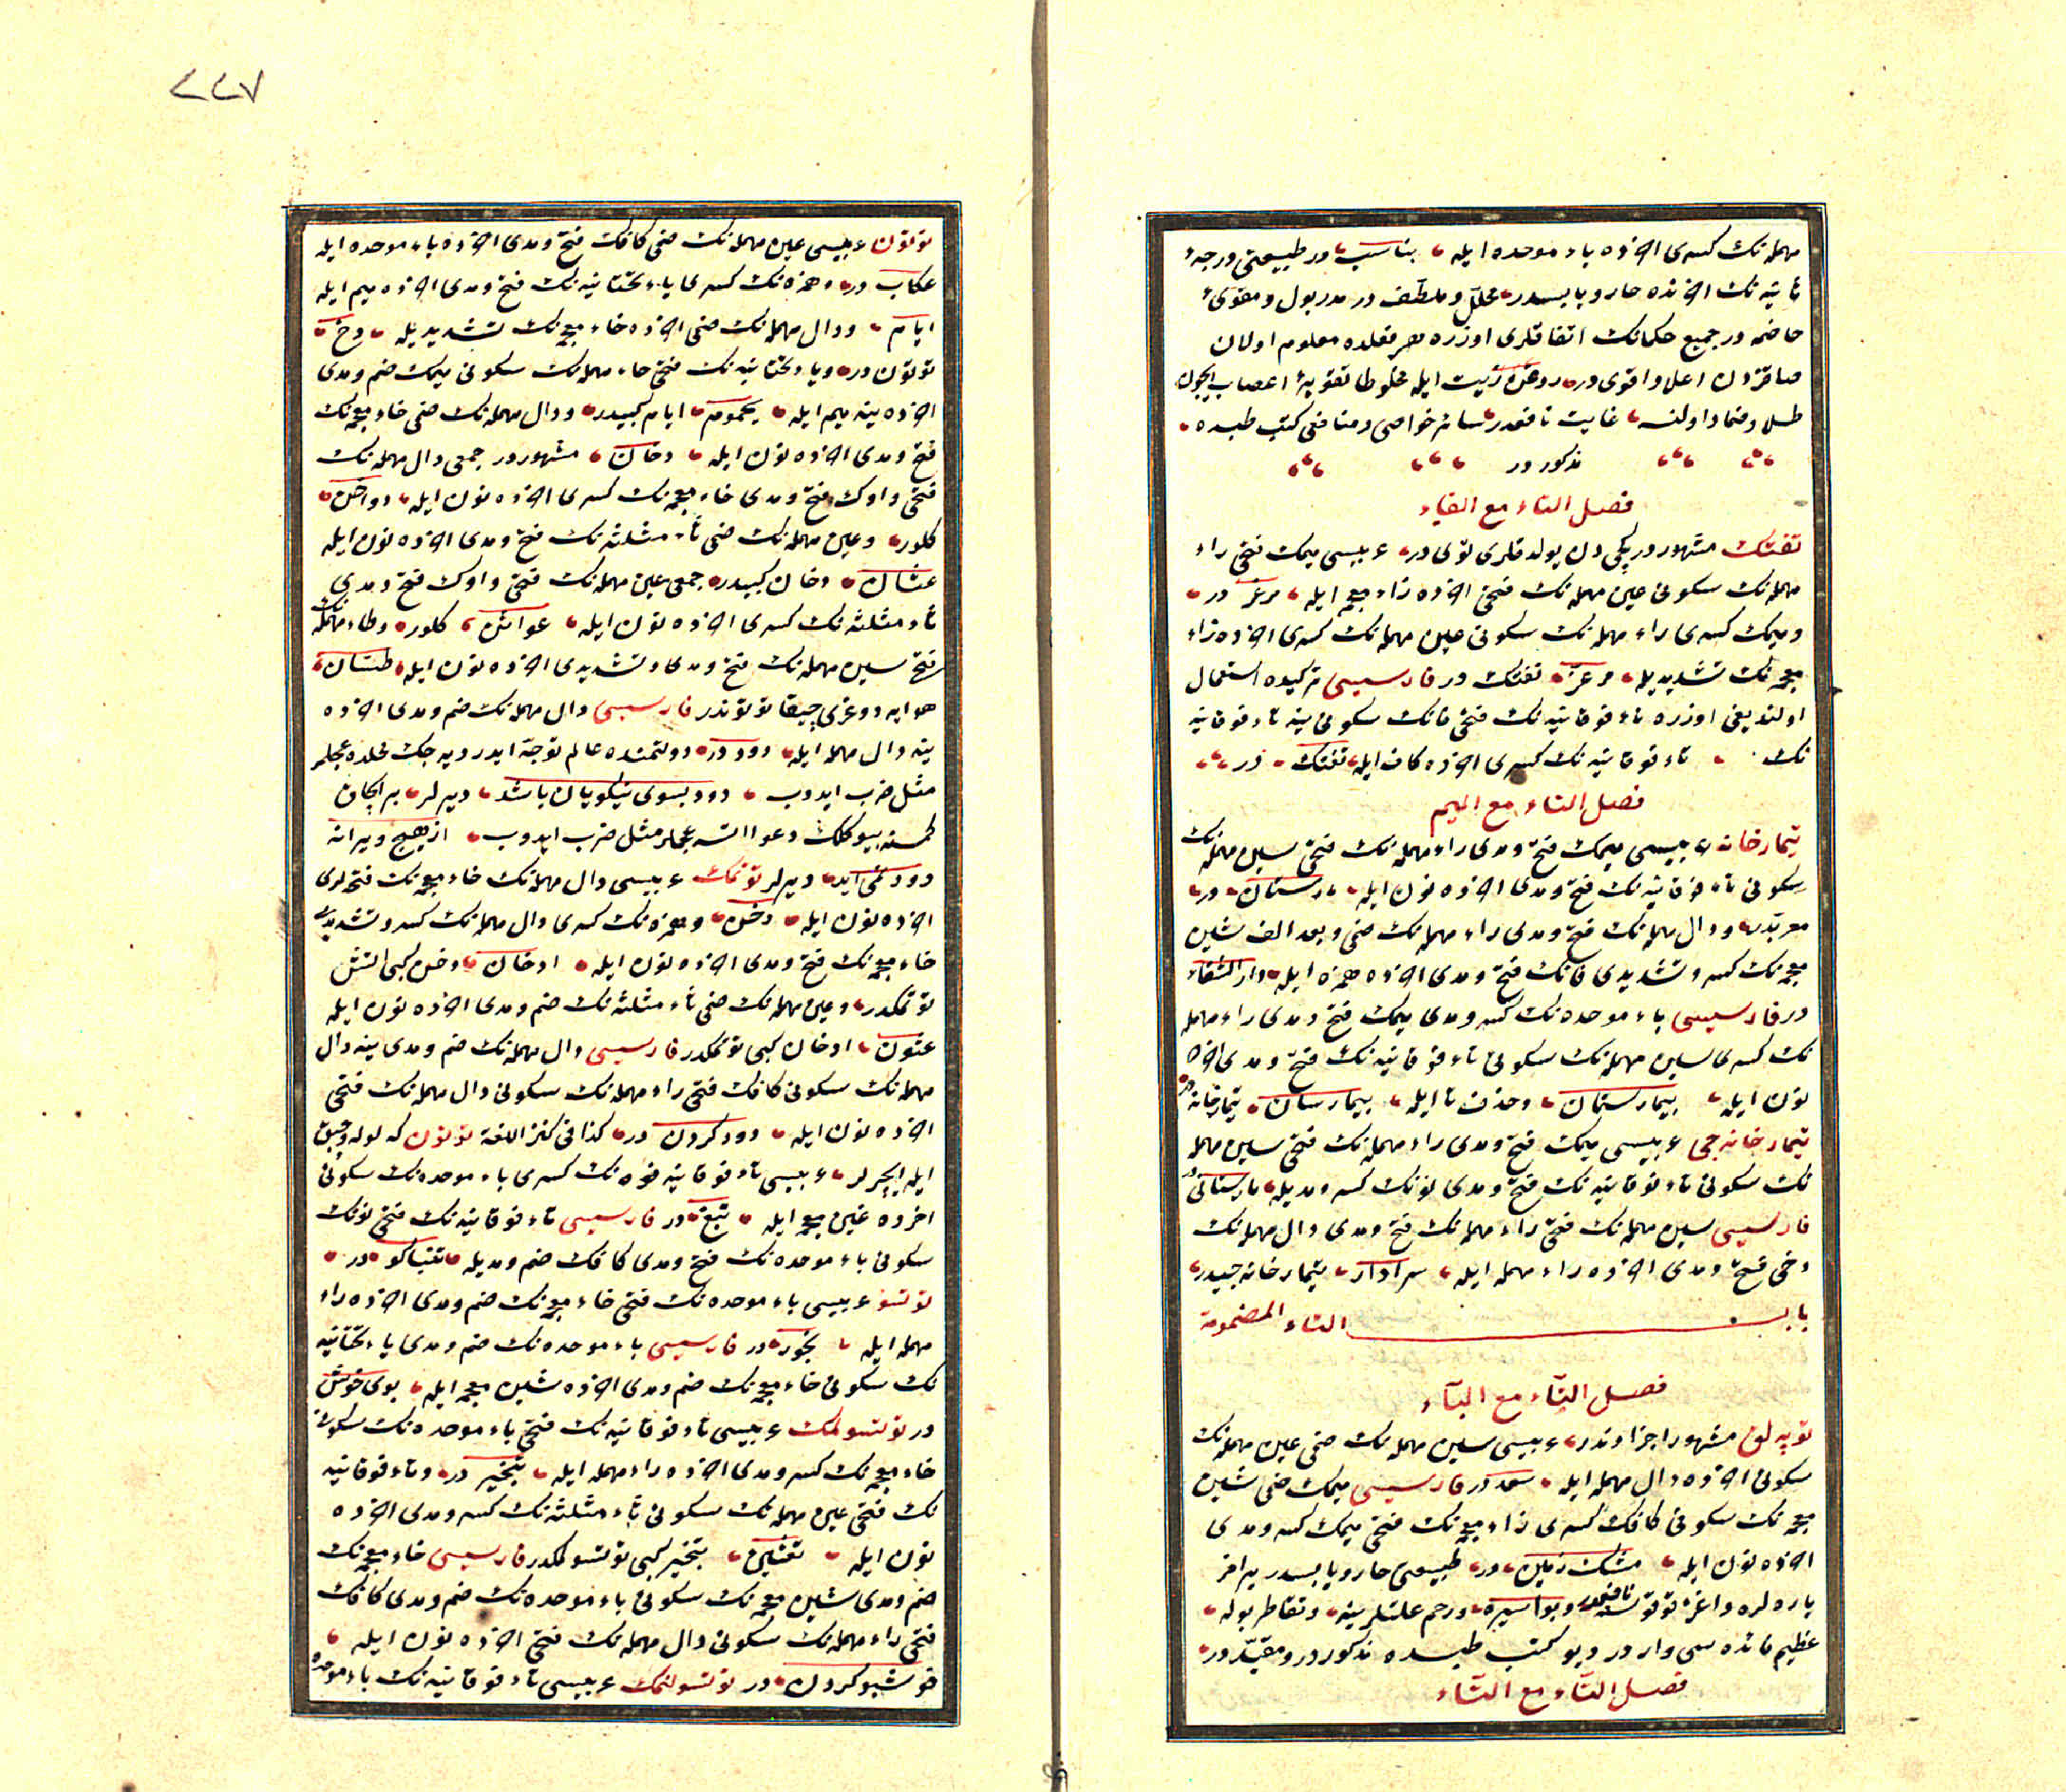 مهمله نك كسرى اخرده باء موحده ايله بناسب در طبيعتى درجهٔ
ثانيه نك اخرنده حار و يابسدر محلل و ملطف در مدر بول و مقوئ
هاضمه در جميع حكمانك اتفاقلرى اوزره هر مقلده معلوم اولان
صاقزدن اعلا و اقوى در روغن زيت ايله مخلوطا تقويهٔ اعصاب ايچون
طلا و ضماد اولنسه غايت نافعدر سائر خواصى و منافعى كتب طبده
مذكور در
فصل التاء مع الفاء
تفتك مشهور در كچى دن يولدقلرى توى در عربيسى ميمك فتحى راء
مهمله نك سكونى عين مهمله نك فتحى اخرده زاء معجمه ايله مرعز در
و ميمك كسرى راء مهمله نك سكونى عين مهمله نك كسرى اخرده زاء
معجمه نك تشديديله مرعز تفتك در فارسيسى تركيده استعمال
اولنديغى اوزره تاء فوقانيه نك فتحى فانك سكونى ينه تاء فوقانيه
نك تاء فوقانيه نك كسرى اخرده كاف ايله تفتك در
فصل التاء مع الميم
تيمارخانه عربيسى ميمك فتح و مدى راء مهمله نك فتحى سين مهمله نك
سكونى تاء فوقانيه نك فتح و مدى اخرده نون ايله مارستان در
معربدر و دال مهمله نك فتح و مدى راء مهمله نك ضمى و بعد الف شين
معجمه نك كسر و تشديدى فانك فتح و مدى اخرده همزه ايله دار الشفاء
در فارسيسى باء موحده نك كسر و مدى ميمك فتح و مدى راء مهمله
نك كسرى سين مهمله نك سكونى تاء فوقانيه نك فتح و مدى اخرده
نون ايله بيمارستان و حذف تا ايله بيمارسان تيمارخانه در
تيمارخانه جى عربيسى ميمك فتح و مدى راء مهمله نك فتحى سين مهمله
نك سكونى تاء فوقانيه نك فتح و مدى نونك كسر و مديله مارستانى در
فارسيسى سين مهمله نك فتحى راء مهمله نك فتح و مدى دال مهمله نك
دخى فتح و مدى اخرده راء مهمله ايله سرادار تيمارخانه جيدر
باب التاء المضمومة
فصل التاء مع الباء
توپه لق مشهور اجزاوندر عربيسى سين مهمله نك ضمى عين مهمله نك
سكونى اخرده دال مهمله ايله سعد در فارسيسى ميمك ضمى شين
معجمه نك سكونى كافك كسرى زاء معجمه نك فتحى ميمك كسر و مدى
اخرده نون ايله مشك زمين در طبيعتى حار و يابسدر
ياره لره و اغز قوقوسنه نافعدر و بواسيره و رحم علتلرينه و تقاطر بوله
عظيم فائده سى وار در كتب طبده مذكور در و مقيد در
فصل التاء مع التاء
٢٢٧
توتون عربيسى عين مهمله نك ضمى كافك فتح و مدى اخرده باء موحده ايله
عكاب در و همزه نك كسرى ياء تحتانيه نك فتح و مدى اخرده ميم ايله
ايام و دال مهمله نك ضمى اخرده خاء معجمه نك تشديديله دخ
توتون در و ياء تحتانيه نك فتحى حاء مهمله نك سكونى ميمك ضم و مدى
اخرده ينه ميم ايله يحموم ايام كبيدر و دال مهمله نك ضمى خاء معجمه نك
فتح و مدى اخرده نون ايله دخان مشهور در جمعى دال مهمله نك
فتحى واوك فتح و مدى خاء معجمه نك كسرى اخرده نون ايله دواخن
كلور و عين مهمله نك ضمى ثاء مثلثه نك فتح و مدى اخرده نون ايله
عثان دخان كبيدر جمعى عين مهمله نك فتحى واوك فتح و مدى
ثاء مثلثه نك كسرى اخرده نون ايله عواثن كلور و طاء مهمله نك
فتح سين مهمله نك فتح و مدى و تشديدى اخرده نون ايله طسان
هوايه دوغرى چيقان توتوندر فارسيسى دال مهمله نك ضم و مدى اخرده
ينه دال مهمله ايله دود در دولتمنده عالم توجه ايدر ديه جك محلده عجملر
مثل ضرب ايدوب دود بسوى نيكويان باشد ديرلر
دعوا اتسه عجملر مثل ضرب ايدوب از هيچ ويرانه
دود نمى آيد ديرلر توتمك عربيسى دال مهمله نك خاء معجمه نك فتحه لرى
اخرده نون ايله دخن و همزه نك كسرى دال مهمله نك كسر و تشديدى
خاء معجمه نك فتح و مدى اخرده نون ايله ادخان دخن كبى اتش
توتمكدر و عين مهمله نك ضمى ثاء مثلثه نك ضم و مدى اخرده نون ايله
عثون ادخان كبى توتمكدر فارسيسى دال مهمله نك ضم و مدى ينه دال
مهمله نك سكونى كافك فتحى راء مهمله نك سكونى دال مهمله نك فتحى
اخرده نون ايله دود كردن در كذا فى كنز اللغة توتون كه لوله و چبق
ايله ايچرلر عربيسى تاء فوقانيه فوه نك كسرى باء موحده نك سكونى
اخرده غين معجمه ايله تبغ در فارسيسى تاء فوقانيه نك فتحى نونك
سكونى باء موحده نك فتح و مدى كافك ضم و مديله تنباكو در
توتسو عربيسى باء موحده نك فتحى خاء معجمه نك ضم و مدى اخرده راء
مهمله ايله بخور در فارسيسى باء موحده نك ضم و مدى ياء تحتانيه
نك سكونى خاء معجمه نك ضم و مدى اخرده شين معجمه ايله بوى خوش
در توتسولمك عربيسى تاء فوقانيه نك فتحى باء موحده نك سكونى
خاء معجمه نك كسر و مدى اخرده راء مهمله ايله تبخير در و تاء فوقانيه
نك فتحى عين مهمله نك سكونى ثاء مثلثه نك كسر و مدى اخرده
نون ايله تعثين تبخير كبى توتسولمكدر فارسيسى خاء معجمه نك
ضم و مدى شين معجمه نك سكونى باء موحده نك ضم و مدى كافك
فتحى راء مهمله نك سكونى دال مهمله نك فتحى اخرده نون ايله
خوشبو كردن در توتسولنمك عربيسى تاء فوقانيه نك باء موحده